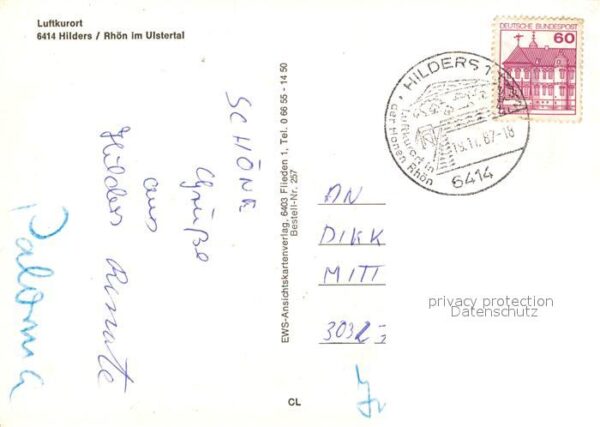 Luftkurort
6414 Hilders / Rhön im Ulstertal
SCHÖNE
Grüße
aus
Hilders Renate
Paloma
EWS-Ansichtskartenverlag, 6403 Flieden 1, Tel. 0 66 55 - 14 50
Bestell-Nr. 257
CL
DEUTSCHE BUNDESPOST
60
HILDERS 1
Luftkurort in
der Hohen Rhön
6414
AN
DIKK
MITT
privacy protection
Datenschutz